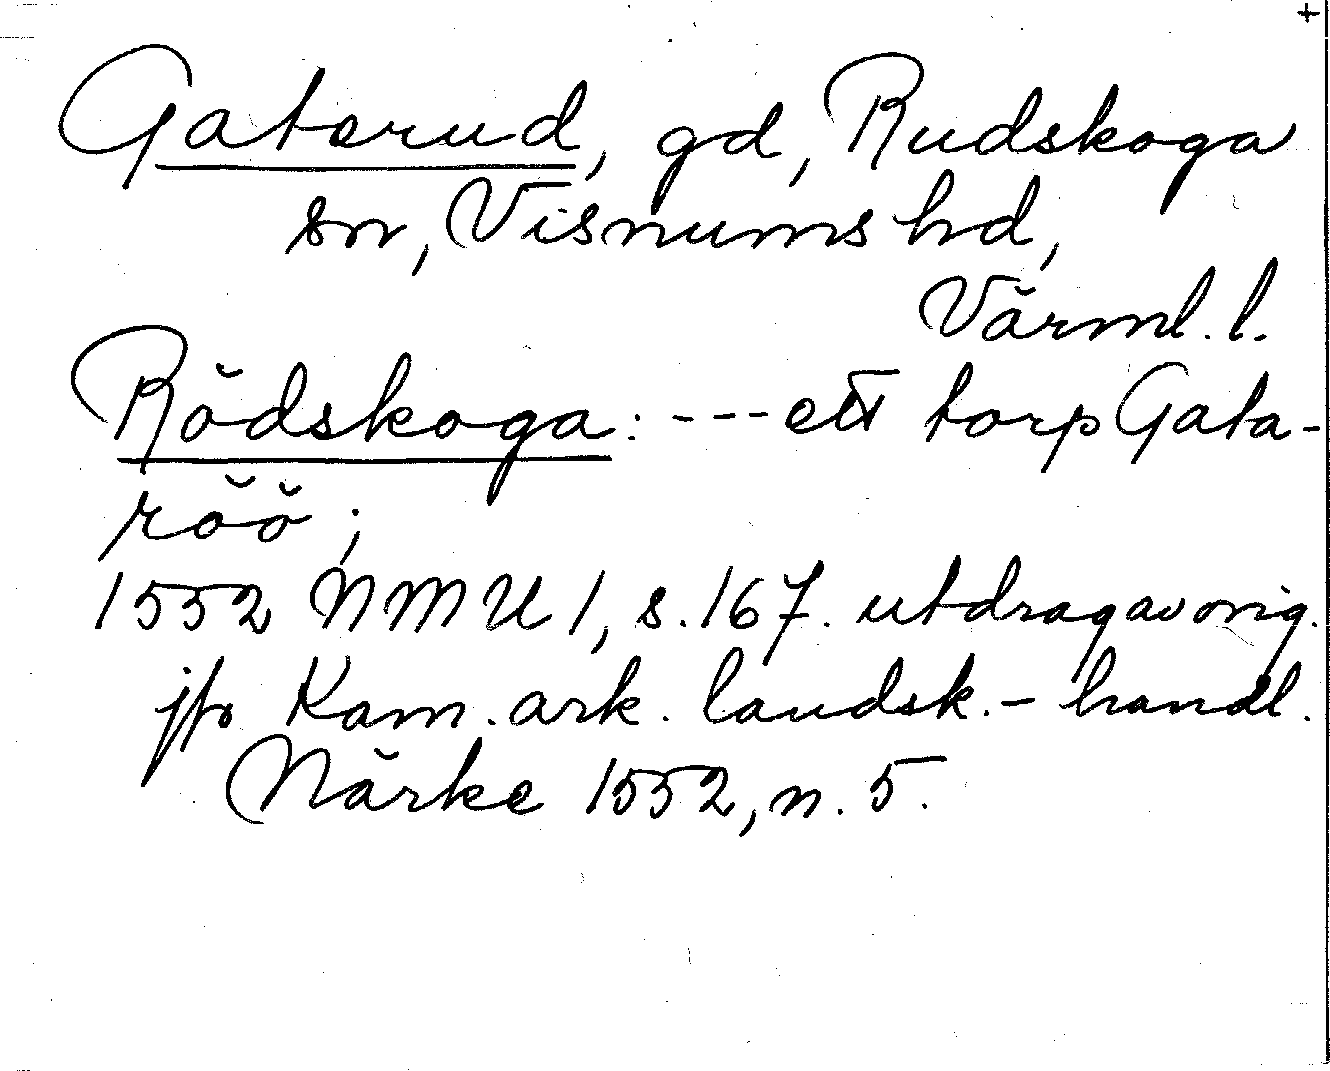 +
Gaterud, gd, Rudskoga
sn, Visnums hd,
Värml. l.
Rödskoga: --- ett torp Gata-
röö;
1552 NMU 1, s. 167. utdrag av orig.
jfr Kam. ark. landsk.- handl.
Närke 1552, n. 5.